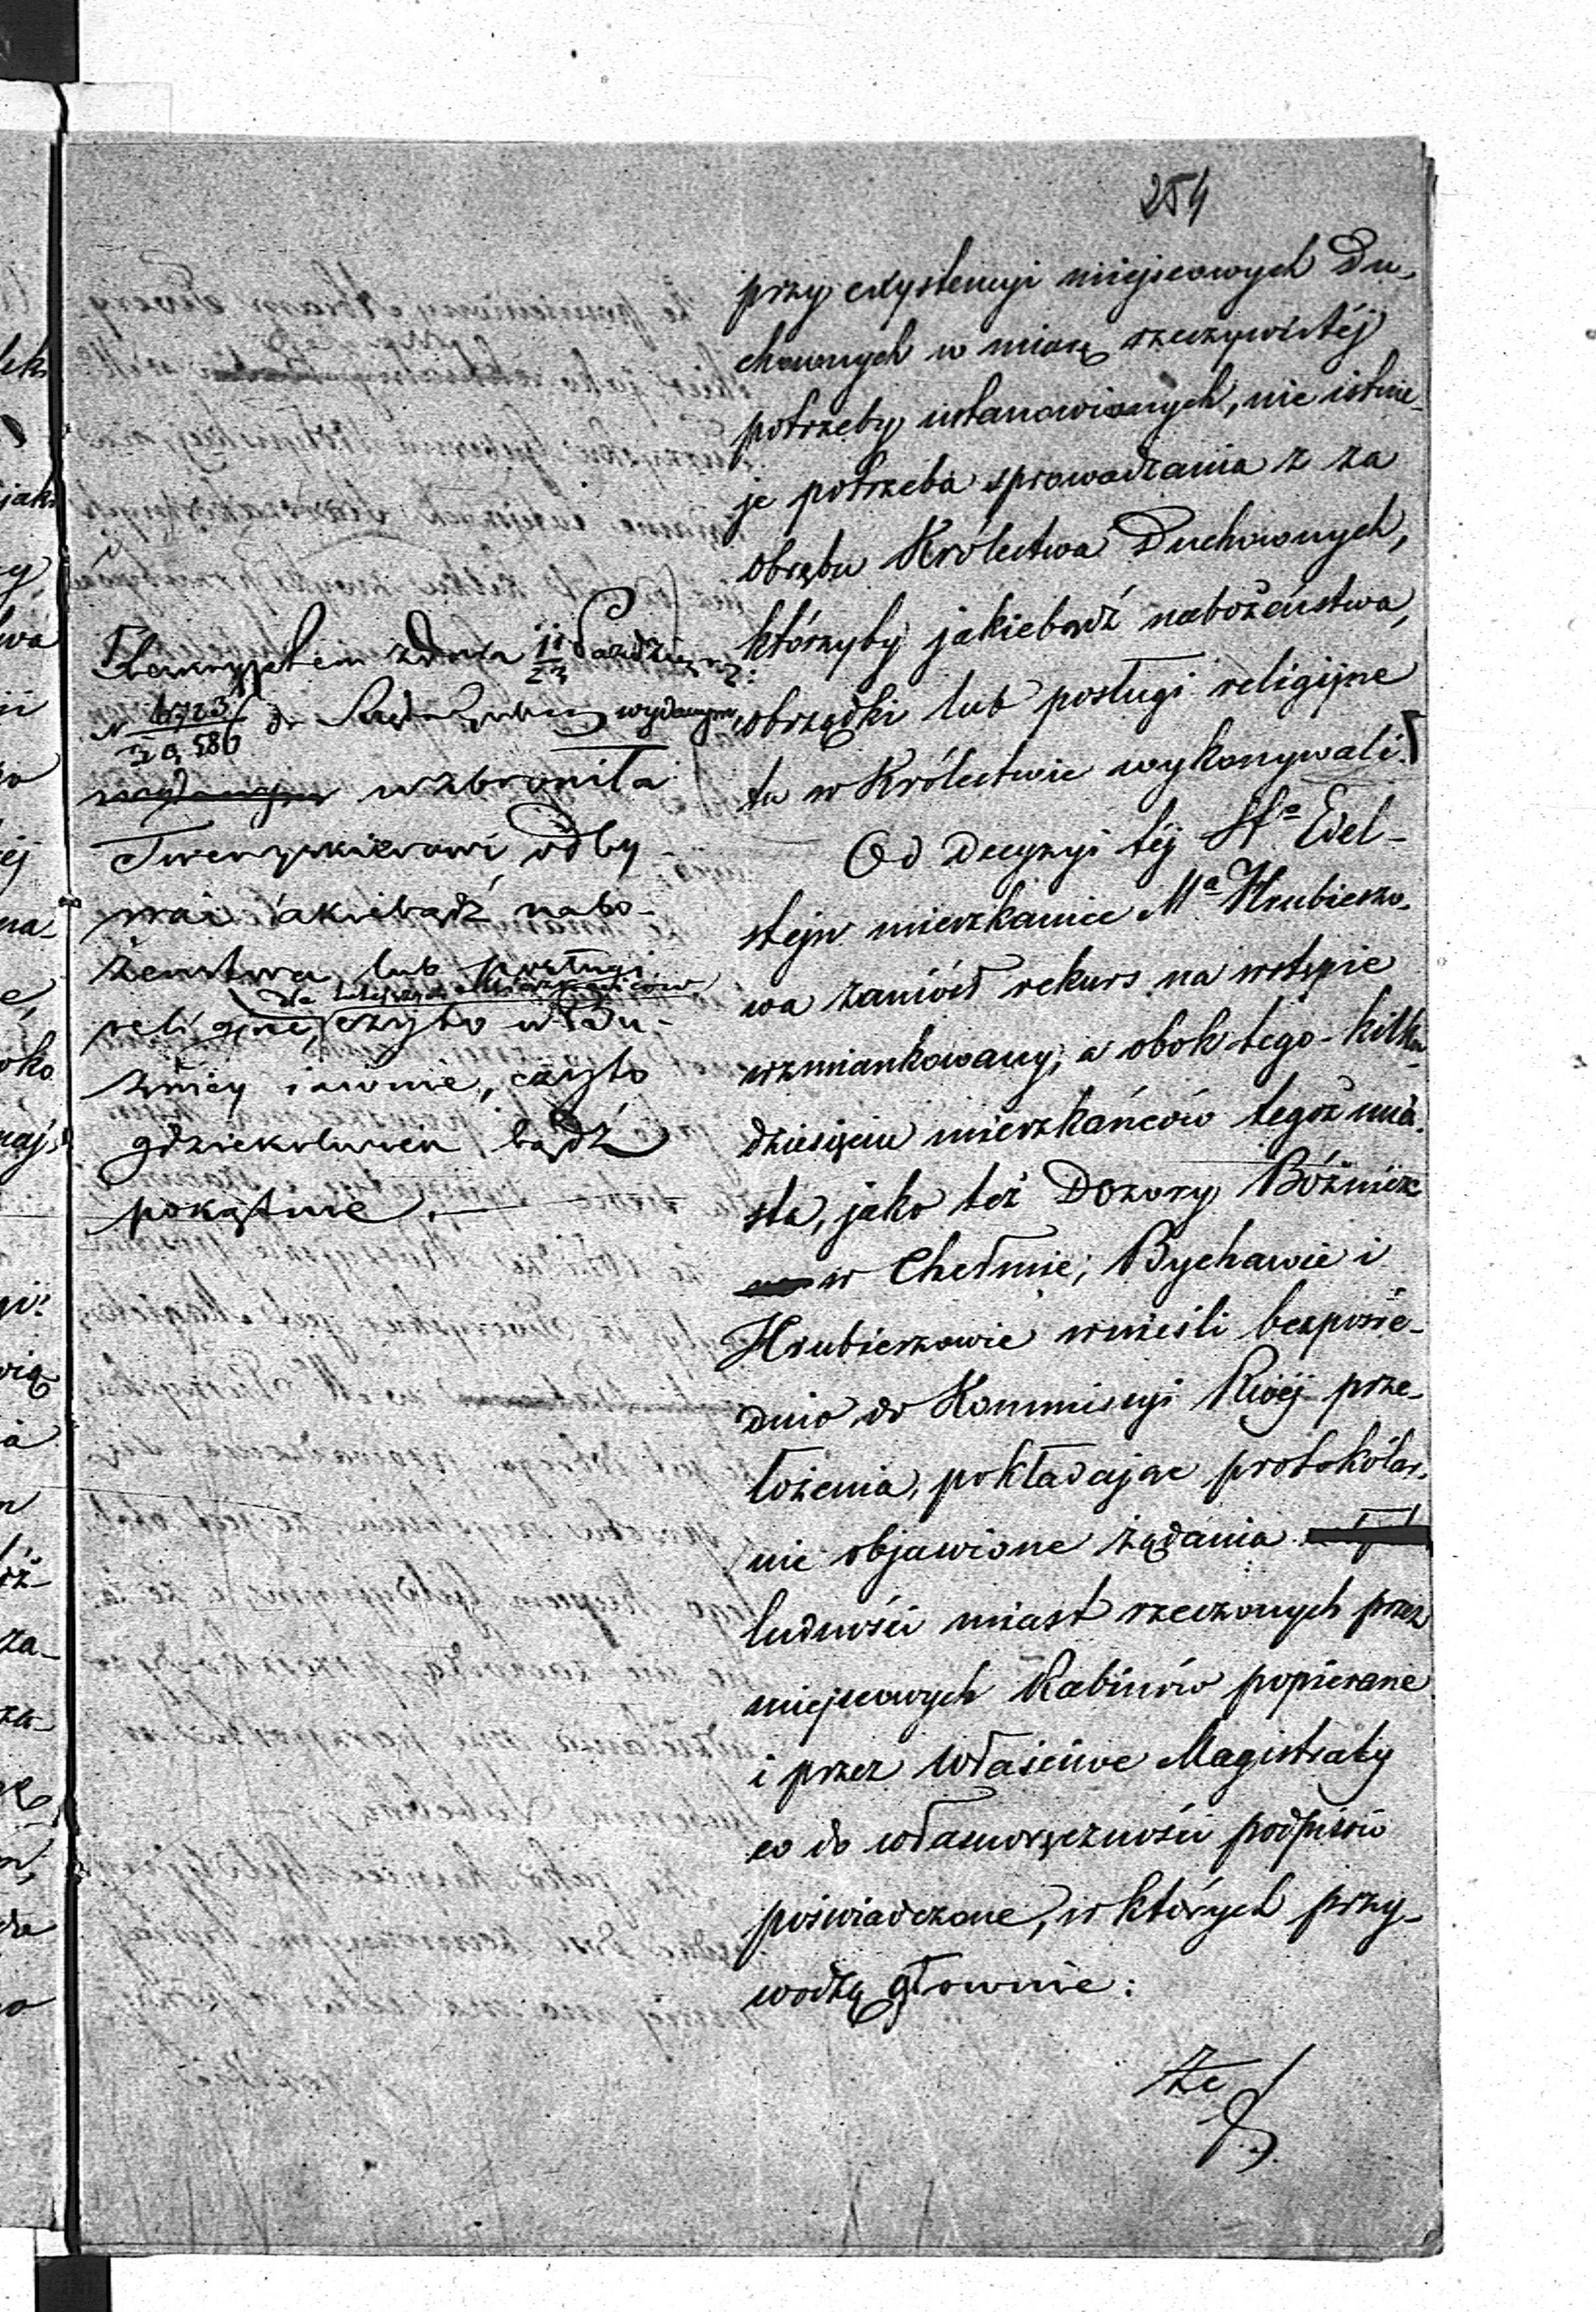 254
przy exystencyi miejscowych Du-
chownych w miarę rzeczywistéj
potrzeby ustanowionych, nie istnie-
je potrzeba sprowadzania z za
obrębu Królestwa Duchownych,
którzyby jakiebądź nabożeństwa,
obrządki lub posługi religijne
tu w Królestwie wykonywali.
Od decyzyi téj St⁠ᵃ Edel-
stejn mieszkaniec Mᵃ Hrubieszo-
wa zaniósł rekurs na wstępie
wzmiankowany, a obok tego kilku-
dziesięciu mieszkańców tegoż mia-
sta, jako też Dozory Bóżnicze
w Chełmie, Bychawie i
Hrubieszowie wnieśli bezpośre-
dnio do Kommisyi Rwéj prze-
łożenia, pokładając protokólar-
nie objawione żądania
ludności miast rzeczonych przez
miejscowych Rabinów popierane
i przez właściwe Magistraty
co do własnoręczności podpisów
poświadczone, w których przy-
wodzą głownie:
że
Reskryptem z dnia 11/23 Paździer.
N 6723/ 586 do Rządu Guber. wydanym
wydanym wzbroniła
Twerskiemu odby
wać jakiebądź nabo-
żeństwa lub posługi
dla tutejszych Mieszkańców
religijne, czyto w Bó-
żnicy jawnie, czyto
gdziekolwiek bądź
pokątnie.